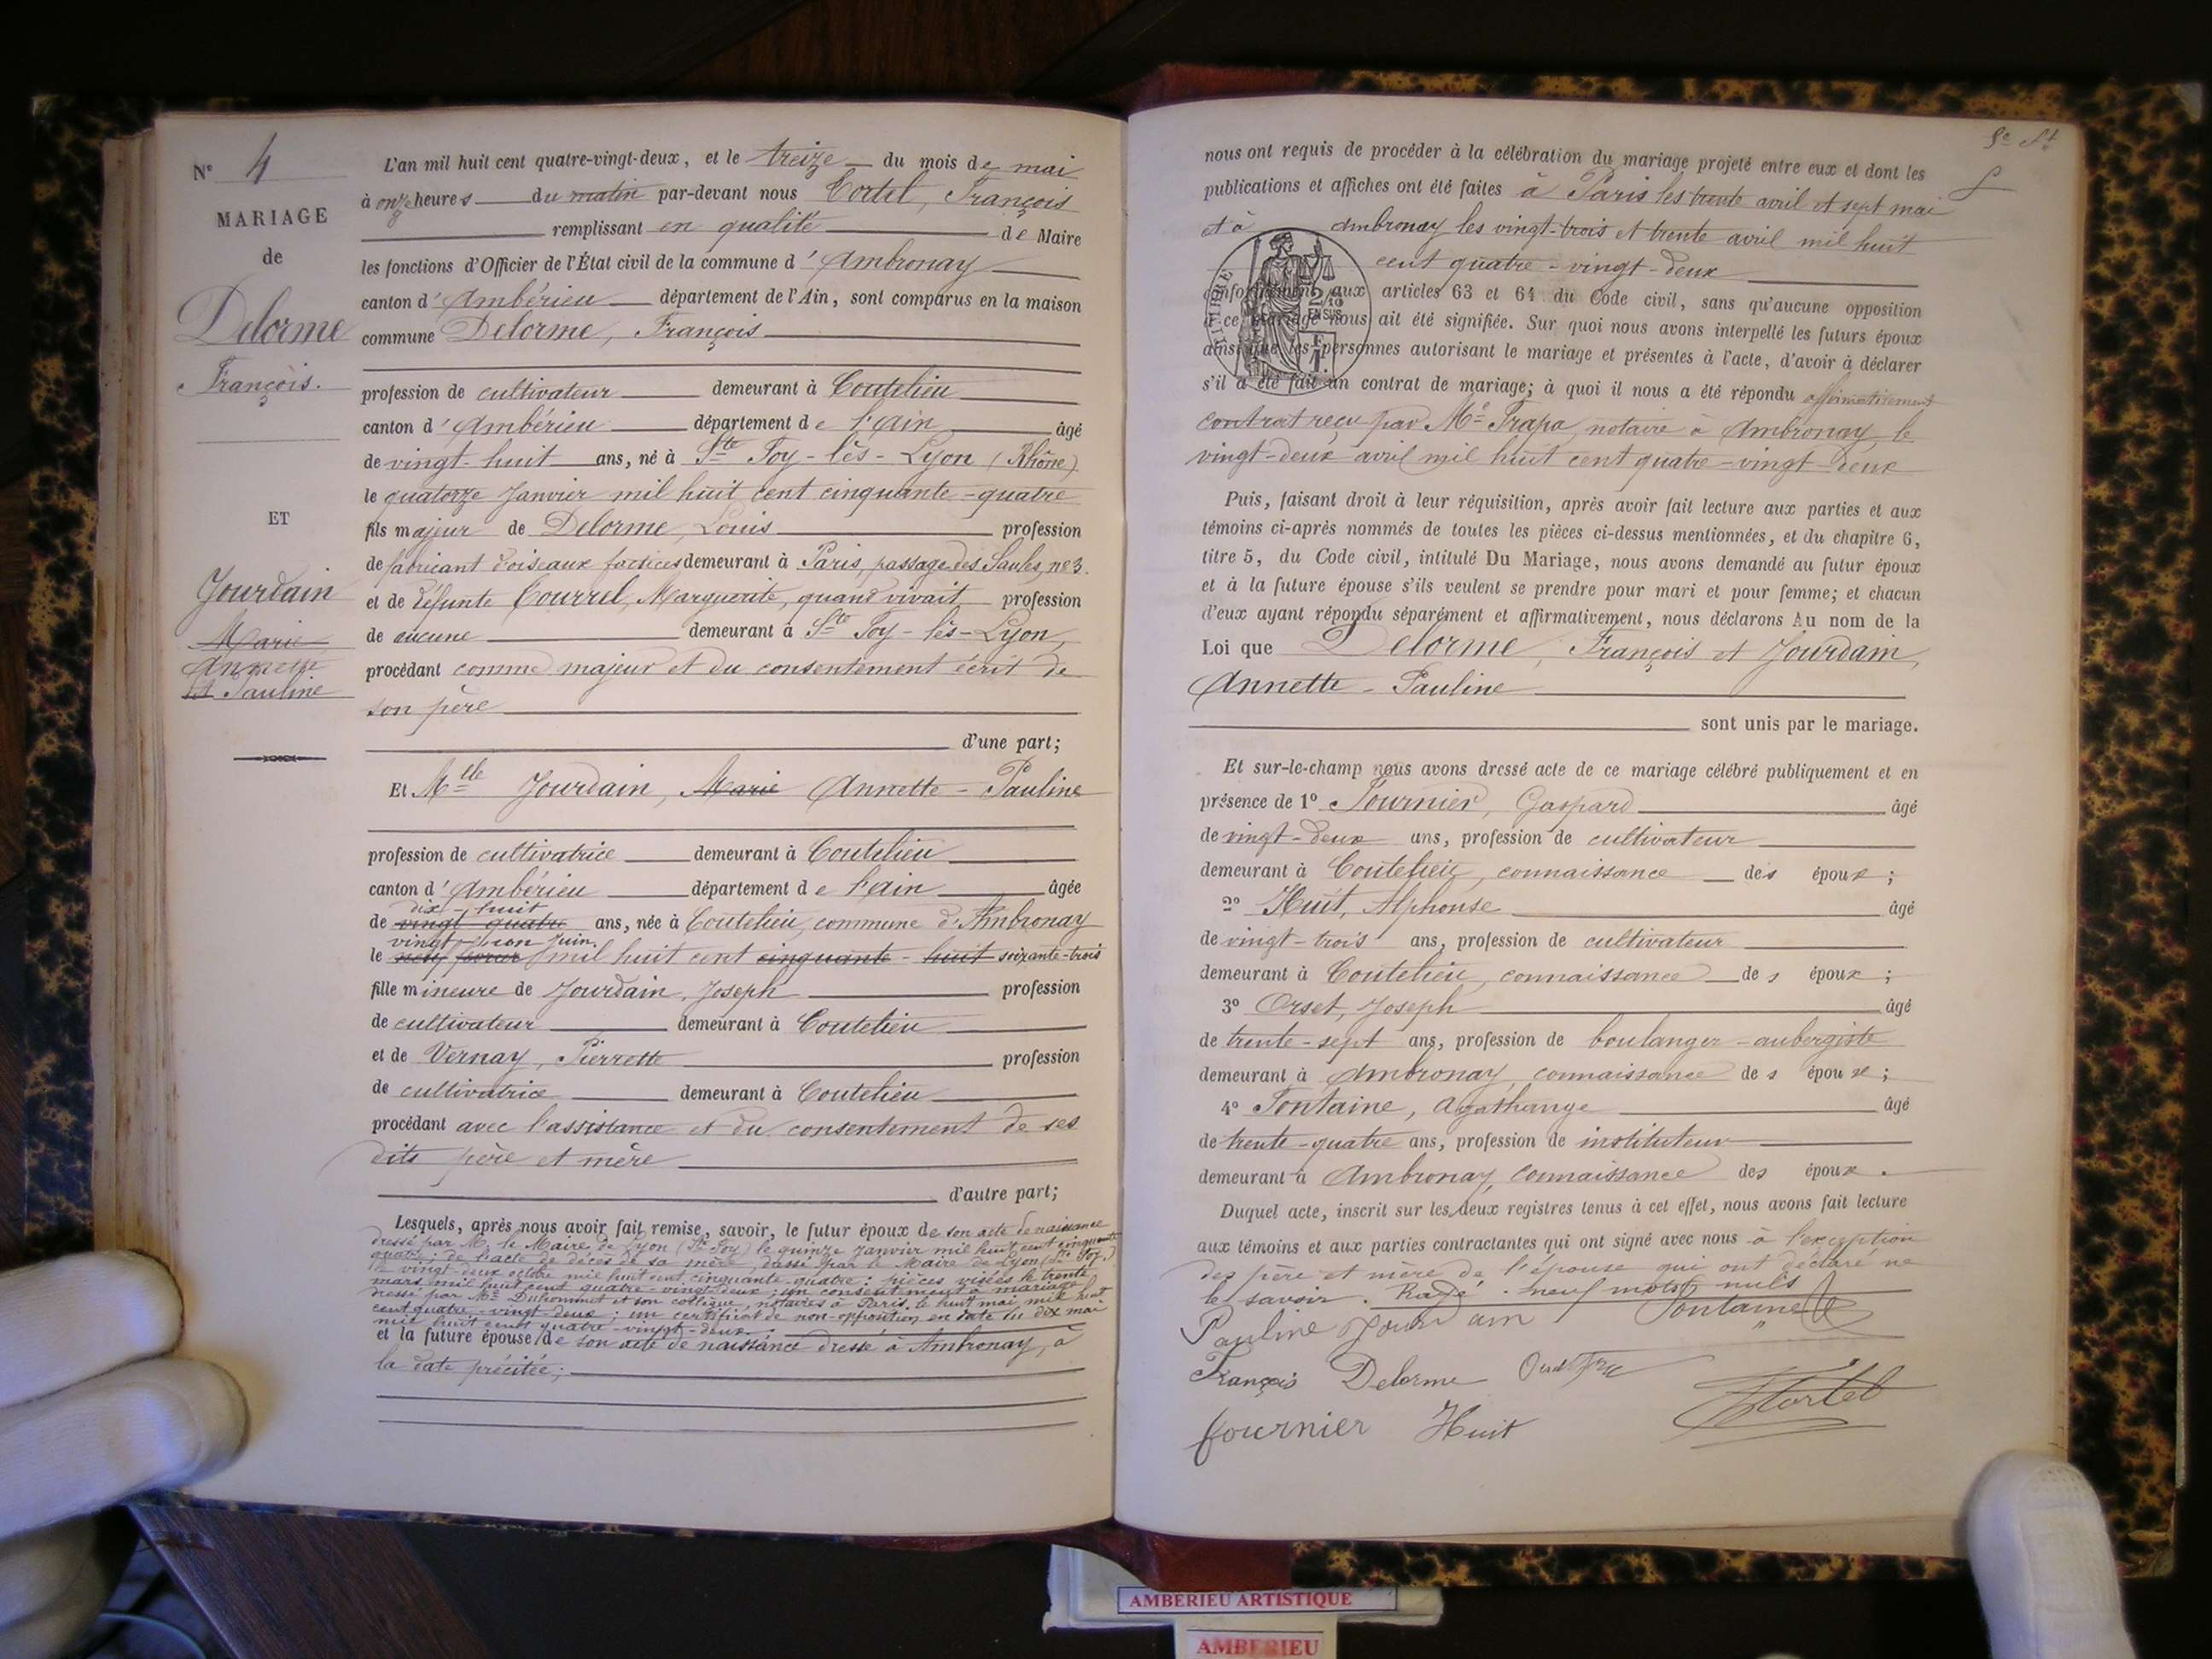 N° 4
MARIAGE
de
Delorme
François.
ET
Jourdain
Marie
Annette
et Pauline
L'an mil huit cent quatre-vingt-deux, et le treize du mois de mai
à onze heures du matin par-devant nous Tortel, François
remplissant en qualité de Maire
les fonctions d'Officier de l'État civil de la commune d'Ambronay
canton d'Ambérieu département de l'Ain, sont comparus en la maison
commune Delorme, François
profession de cultivateur demeurant à Coutelieu
canton d'Ambérieu département de l'Ain âgé
de vingt-huit ans, né à Ste Foy-lès-Lyon (Rhône)
le quatorze Janvier mil huit cent cinquante-quatre
fils majeur de Delorme, Louis profession
de fabricant d'oiseaux factices demeurant à Paris, passage des Saules, n° 3.
et de défunte Courrel, Marguerite, quand vivait profession
de aucune demeurant à Ste Foy-lès-Lyon,
procédant comme majeur et du consentement écrit de
son père
d'une part;
Et Mlle Jourdain, Marie Annette-Pauline
profession de cultivatrice demeurant à Coutelieu
canton d'Ambérieu département de l'Ain âgée
dix-huit
de vingt quatre ans, née à Coutelieu, commune d'Ambronay
vingt juin.
le mil huit cent cinquante-huit soixante-trois
fille mineure de Jourdain, Joseph profession
de cultivateur demeurant à Coutelieu
et de Vernay, Pierrette profession
de cultivatrice demeurant à Coutelieu
procédant avec l'assistance et du consentement de ses
dits père et mère
d'autre part;
Lesquels, après nous avoir fait remise, savoir, le futur époux de son acte de naissance
dressé par M. le Maire de Lyon (Ste Foy) le quinze Janvier mil huit cent cinquante
quatre; de l'acte de décès de sa mère, dressé par le Maire de Lyon (Ste Foy)
le vingt-deux octobre mil huit cent cinquante-quatre; pièces visées le trente
mars mil huit cent quatre-vingt-deux; un consentement à mariage
dressé par Me et son collègue, notaires à Paris, le huit mai mil huit
cent quatre-vingt deux; un certificat de non-opposition en date du dix mai
mil huit cent quatre-vingt-deux.
et la future épouse de son acte de naissance dressé à Ambronay, à
la date précitée;
nous ont requis de procéder à la célébration du mariage projeté entre eux et dont les
publications et affiches ont été faites à Paris les trente avril et sept mai
et à Ambronay les vingt-trois et trente avril mil huit
cent quatre-vingt-deux
2/10
EN SUS
conformément aux articles 63 et 64 du Code civil, sans qu'aucune opposition
à ce mariage nous ait été signifiée. Sur quoi nous avons interpellé les futurs époux
ainsi que les personnes autorisant le mariage et présentes à l'acte, d'avoir à déclarer
s'il a été fait un contrat de mariage; à quoi il nous a été répondu affirmativement
contrat reçu par Me Trapa, notaire à Ambronay, le
vingt-deux avril mil huit cent quatre-vingt-deux
Puis, faisant droit à leur réquisition, après avoir fait lecture aux parties et aux
témoins ci-après nommés de toutes les pièces ci-dessus mentionnées, et du chapitre 6,
titre 5, du Code civil, intitulé Du Mariage, nous avons demandé au futur époux
et à la future épouse s'ils veulent se prendre pour mari et pour femme; et chacun
d'eux ayant répondu séparément et affirmativement, nous déclarons Au nom de la
Loi que Delorme, François et Jourdain,
Annette-Pauline
sont unis par le mariage.
Et sur-le-champ nous avons dressé acte de ce mariage célébré publiquement et en
présence de 1° Fournier, Gaspard âgé
de vingt-deux ans, profession de cultivateur
demeurant à Coutelieu, connaissance des époux;
2° Huit, Alphonse âgé
de vingt-trois ans, profession de cultivateur
demeurant à Coutelieu, connaissance des époux;
3° Orset, Joseph âgé
de trente-sept ans, profession de boulanger-aubergiste
demeurant à Ambronay, connaissance des époux;
4° Fontaine, Agathange âgé
de trente-quatre ans, profession de instituteur
demeurant à Ambronay, connaissance des époux.
Duquel acte, inscrit sur les deux registres tenus à cet effet, nous avons fait lecture
aux témoins et aux parties contractantes qui ont signé avec nous à l'exception
des père et mère de l'épouse qui ont déclaré ne
le savoir. Rayé neuf mots nuls
Pauline Jourdain Fontaine
François Delorme
Tortel
fournier Huit
AMBERIEU ARTISTIQUE
AMBERIEU